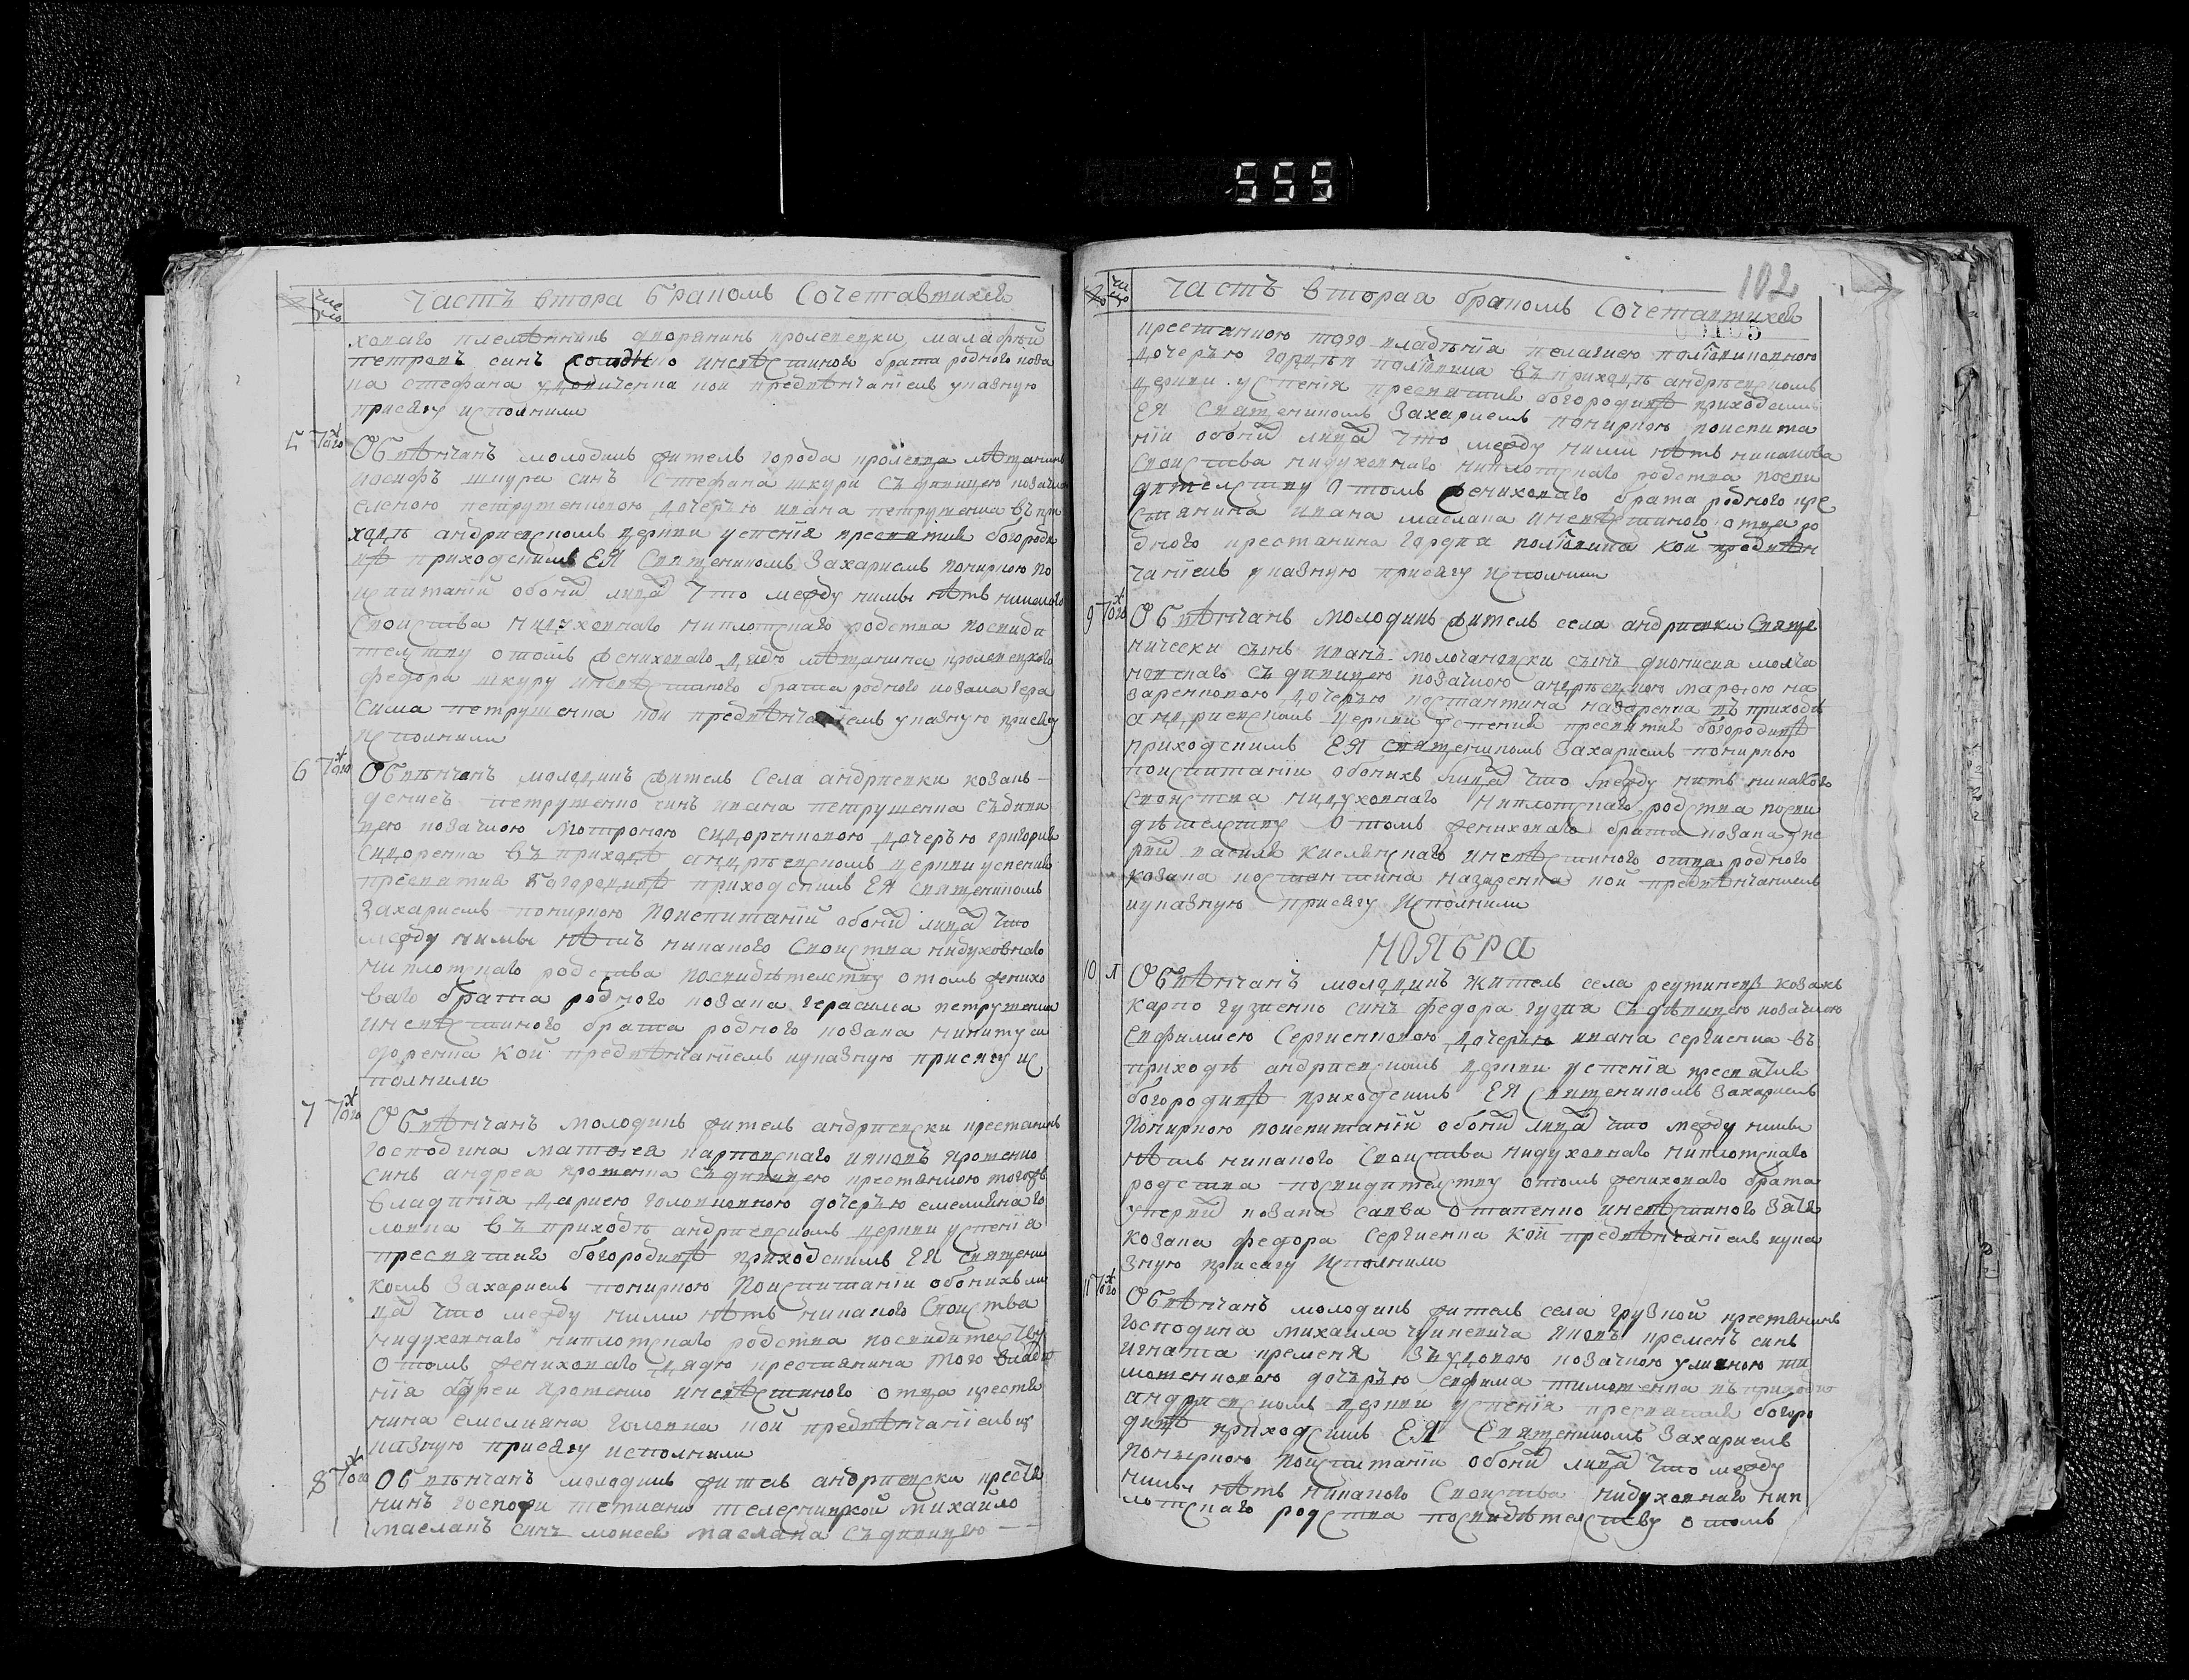 555
Число
Часть втора браколъ Сочетавшихся
ховаго племѣнникъ дворянинъ кролевецки малафѣй
петровъ синъ иневѣстиного брата родного коза
ка стефана кои предвѣнчаніемъ указную
присягу исполнили
5 Тогож Обвѣнчанъ молодикъ житель города кролевца мѣщанинъ
иосифъ шкура синъ Стефана шкури съ дѣвицею козачою
еленою петрушенковою дочерью ивана петрушенка въ при
ходѣ андриевскомъ церкви успенія пресвятия богороди
цѣ приходскимъ ЕЯ Священикомъ Захарием покирною по
испитаній обоихъ лицъ что между ними нѣтъ никакого
Своиства нидуховнаго ниплотскаго родства посвиди
телству отомъ жениховаго дядю мѣщанина кролевецкого
федора шкуру иневѣстиного брата родного козака гера
сима петрушенка кои предвѣнчаніемъ указную присягу
исполнили
6 Тогож Обвѣнчанъ молодикъ житель Села андриевки козакъ
денисъ петрушенко синъ ивана петрушенка съ дѣви
цею козачою мотроною сидоренковою дочерью григория
сидоренка въ приходѣ андрѣевскомъ церкви успения
пресвятия богородицѣ приходскимъ ЕЯ священикомъ
Захариемъ покирною поиспитаній обоихъ лицъ что
между ними нѣтъ никакого Своиства нидуховнаго
ниплотскаго родства посвидѣтелству отомъ женихо
ваго брата родного козака герасима петрушенка
иневѣстиного брата родного козака никиту си
доренка кой предвѣнчаніемъ иуказную присягу ис
полнили
7 Тогож Обвѣнчанъ молодикъ житель андриевски крестянинъ
господина иаковъ яроменко
синъ андрея яроменка съ дѣвицею крестянкою тогожъ
владѣнія дариею головковною дочерью емелияна го
ловка въ приходѣ андриевскомъ церкви успенія
пресвятия богородицѣ приходскимъ ЕЯ священи
комъ Захариемъ покирною поиспитаніи обоихъ ли
цъ что между ними нѣтъ никакого Своиства
нидуховнаго ниплотскаго родства посвидителству
отомъ жениховаго дядю крестянина того владѣ
нія яроменко иневѣстиного отца крестя
нина емелияна головка кой предвѣнчаніемъ у
казную присягу исполнили
8 Тогож Обвѣнчанъ молодикъ житель андриевски крестя
нинъ госпожи тетиани телесницкой михайло
масланъ синъ моисея маслана съ дѣвицею
102
0105
Число
Часть вторая браколъ Сочетавшихся
крестянкою того владѣнія пелагиею
дочерью гордѣя въ приходѣ андрѣевскомъ
церкви успенія пресвятия богородицѣ приходскимъ
ЕЯ Священикомъ Захариемъ покирною поиспита
ніи обоихъ лицъ что между ними нѣтъ никакова
своиства нидуховнаго ниплотскаго родства посви
дителству отомъ жениховаго брата родного кре
стянина ивана маслана иневѣстиного отца ро
дного крестянина гордѣя кой предвѣн
чаніемъ указную присягу исполнили
9 Тогож Обвѣнчанъ молодикъ житель села андриевки Свяще
нически сынъ иванъ сынъ дионисия
съ дѣвицею козачкою марфою на
заренковою дочерью костантина назаренка въ приходѣ
андриевскомъ церкви успения пресвятия богородицѣ
приходскимъ ЕЯ Священикомъ Захариемъ покирною
поиспитаніи обоихъ лицъ что между нѣтъ никакого
своиства нидуховнаго ниплотскаго родства посви
дѣтелству отомъ жениховаго брата козака
василя иневѣстиного отца родного
козака костантина назаренка кой предвѣнчаниемъ
иуказную присягу исполнили
НОЯБРА
10 Л Обвѣнчанъ молодикъ житель села реутинецъ козакъ
карпо гузменко синъ федора гузмя съ дѣвицею козачкою
евфимиею Сергиенковою дочерью ивана сергиенка въ
приходѣ андриевскомъ церкви успенія пресвятия
богородицѣ приходскимъ ЕЯ Священикомъ Захариемъ
покирною поиспитаній обоихъ лицъ что между ними
нѣтъ никакого Своиства нидуховнаго ниплотскаго
родства посвидителству отомъ жениховаго брата
козака савва иневѣстиного зятя
козака федора сергиенка кой предвѣнчаніемъ иука
зную присягу исполнили
11 Тогож Обвѣнчанъ молодикъ житель села грузкой крестянинъ
господина михаила яковъ кременъ синъ
игната кременя зъ удовою козачкою улияною ти
мошенковою дочерью евфима тимошенка въ приходѣ
андриевскомъ церкви успенія пресвятия богоро
дицѣ приходскимъ ЕЯ Священикомъ Захариемъ
покирною поиспитаніи обоихъ лицъ что между
ними нѣтъ никакого Своиства нидуховнаго нип
лотскаго родства посвидѣтелству отомъ